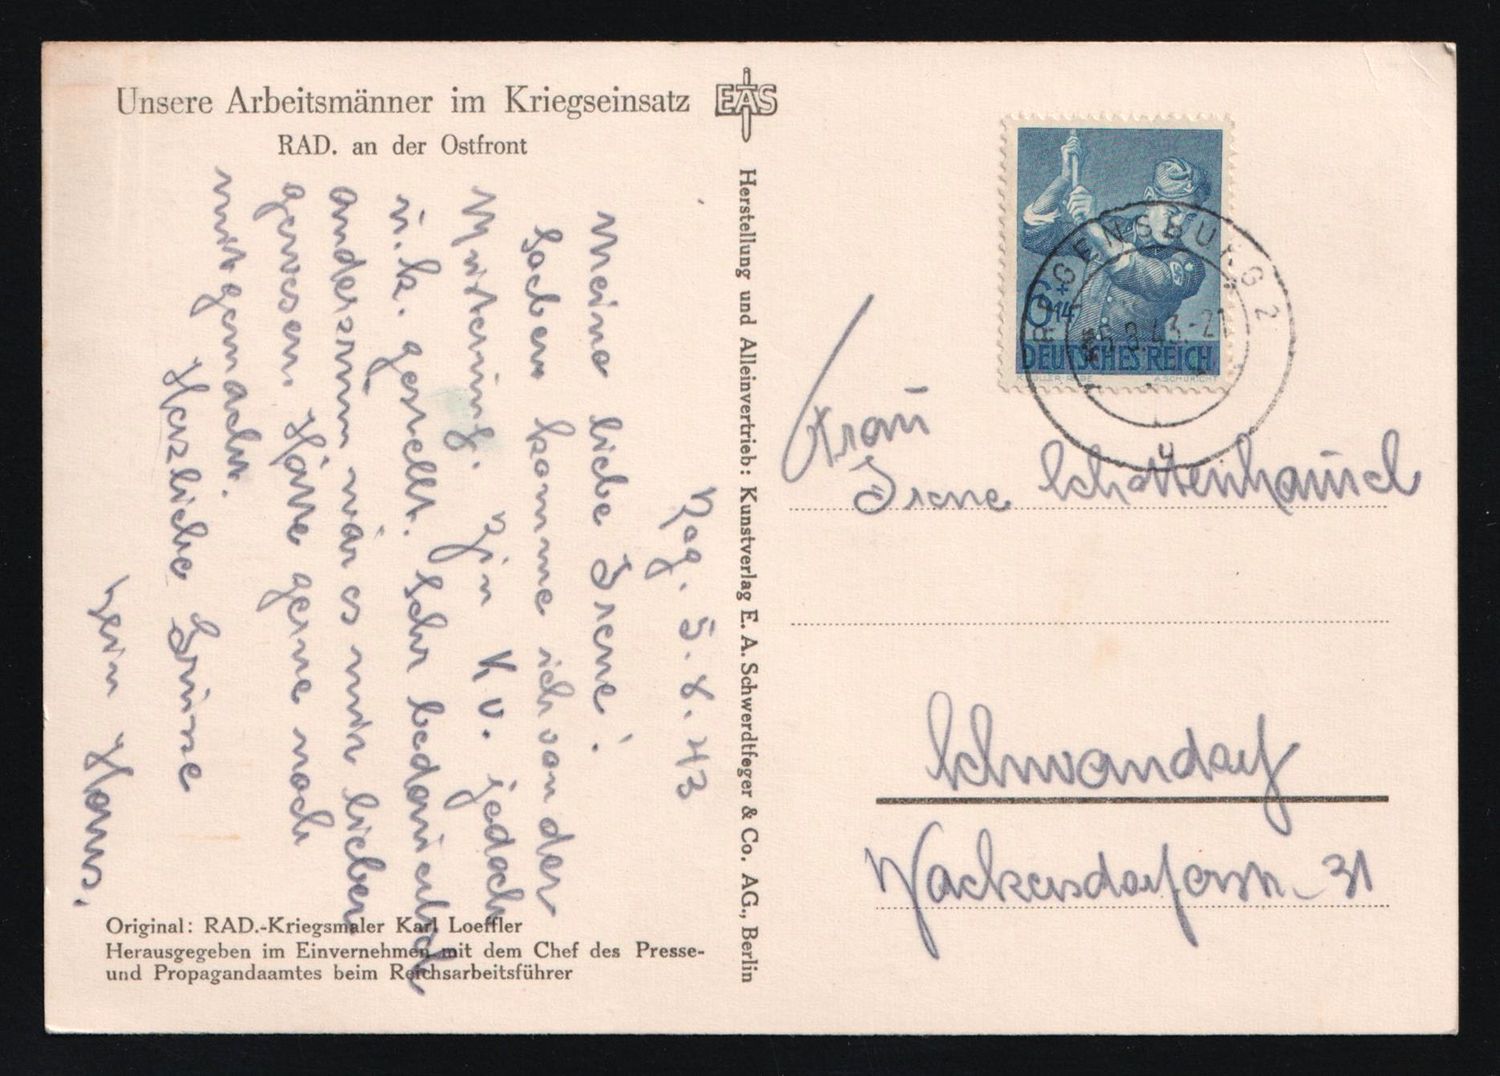 Unsere Arbeitsmänner im Kriegseinsatz
RAD. an der Ostfront
EAS
Herstellung und Alleinvertrieb: Kunstverlag E. A. Schwerdtfeger & Co. AG., Berlin
Reg. 5.8.43
Meine liebe Irene!
Soeben komme ich von der
Musterung. Bin KV. jedoch
u.k. gestellt. Sehr bedauerlich
anderszum wär es mir lieber
gewesen. Hätte gerne noch
mitgemacht.
Herzliche Grüsse
Dein Hans.
Original: RAD.-Kriegsmaler Karl Loeffler
Herausgegeben im Einvernehmen mit dem Chef des Presse-
und Propagandaamtes beim Reichsarbeitsführer
6+14
DEUTSCHES REICH
A.SCHURICHT
REGENSBURG 2
8.43.-21
u
Frau
Irene Schottenhaml
Schwandorf
Wackersdorferstr. 31